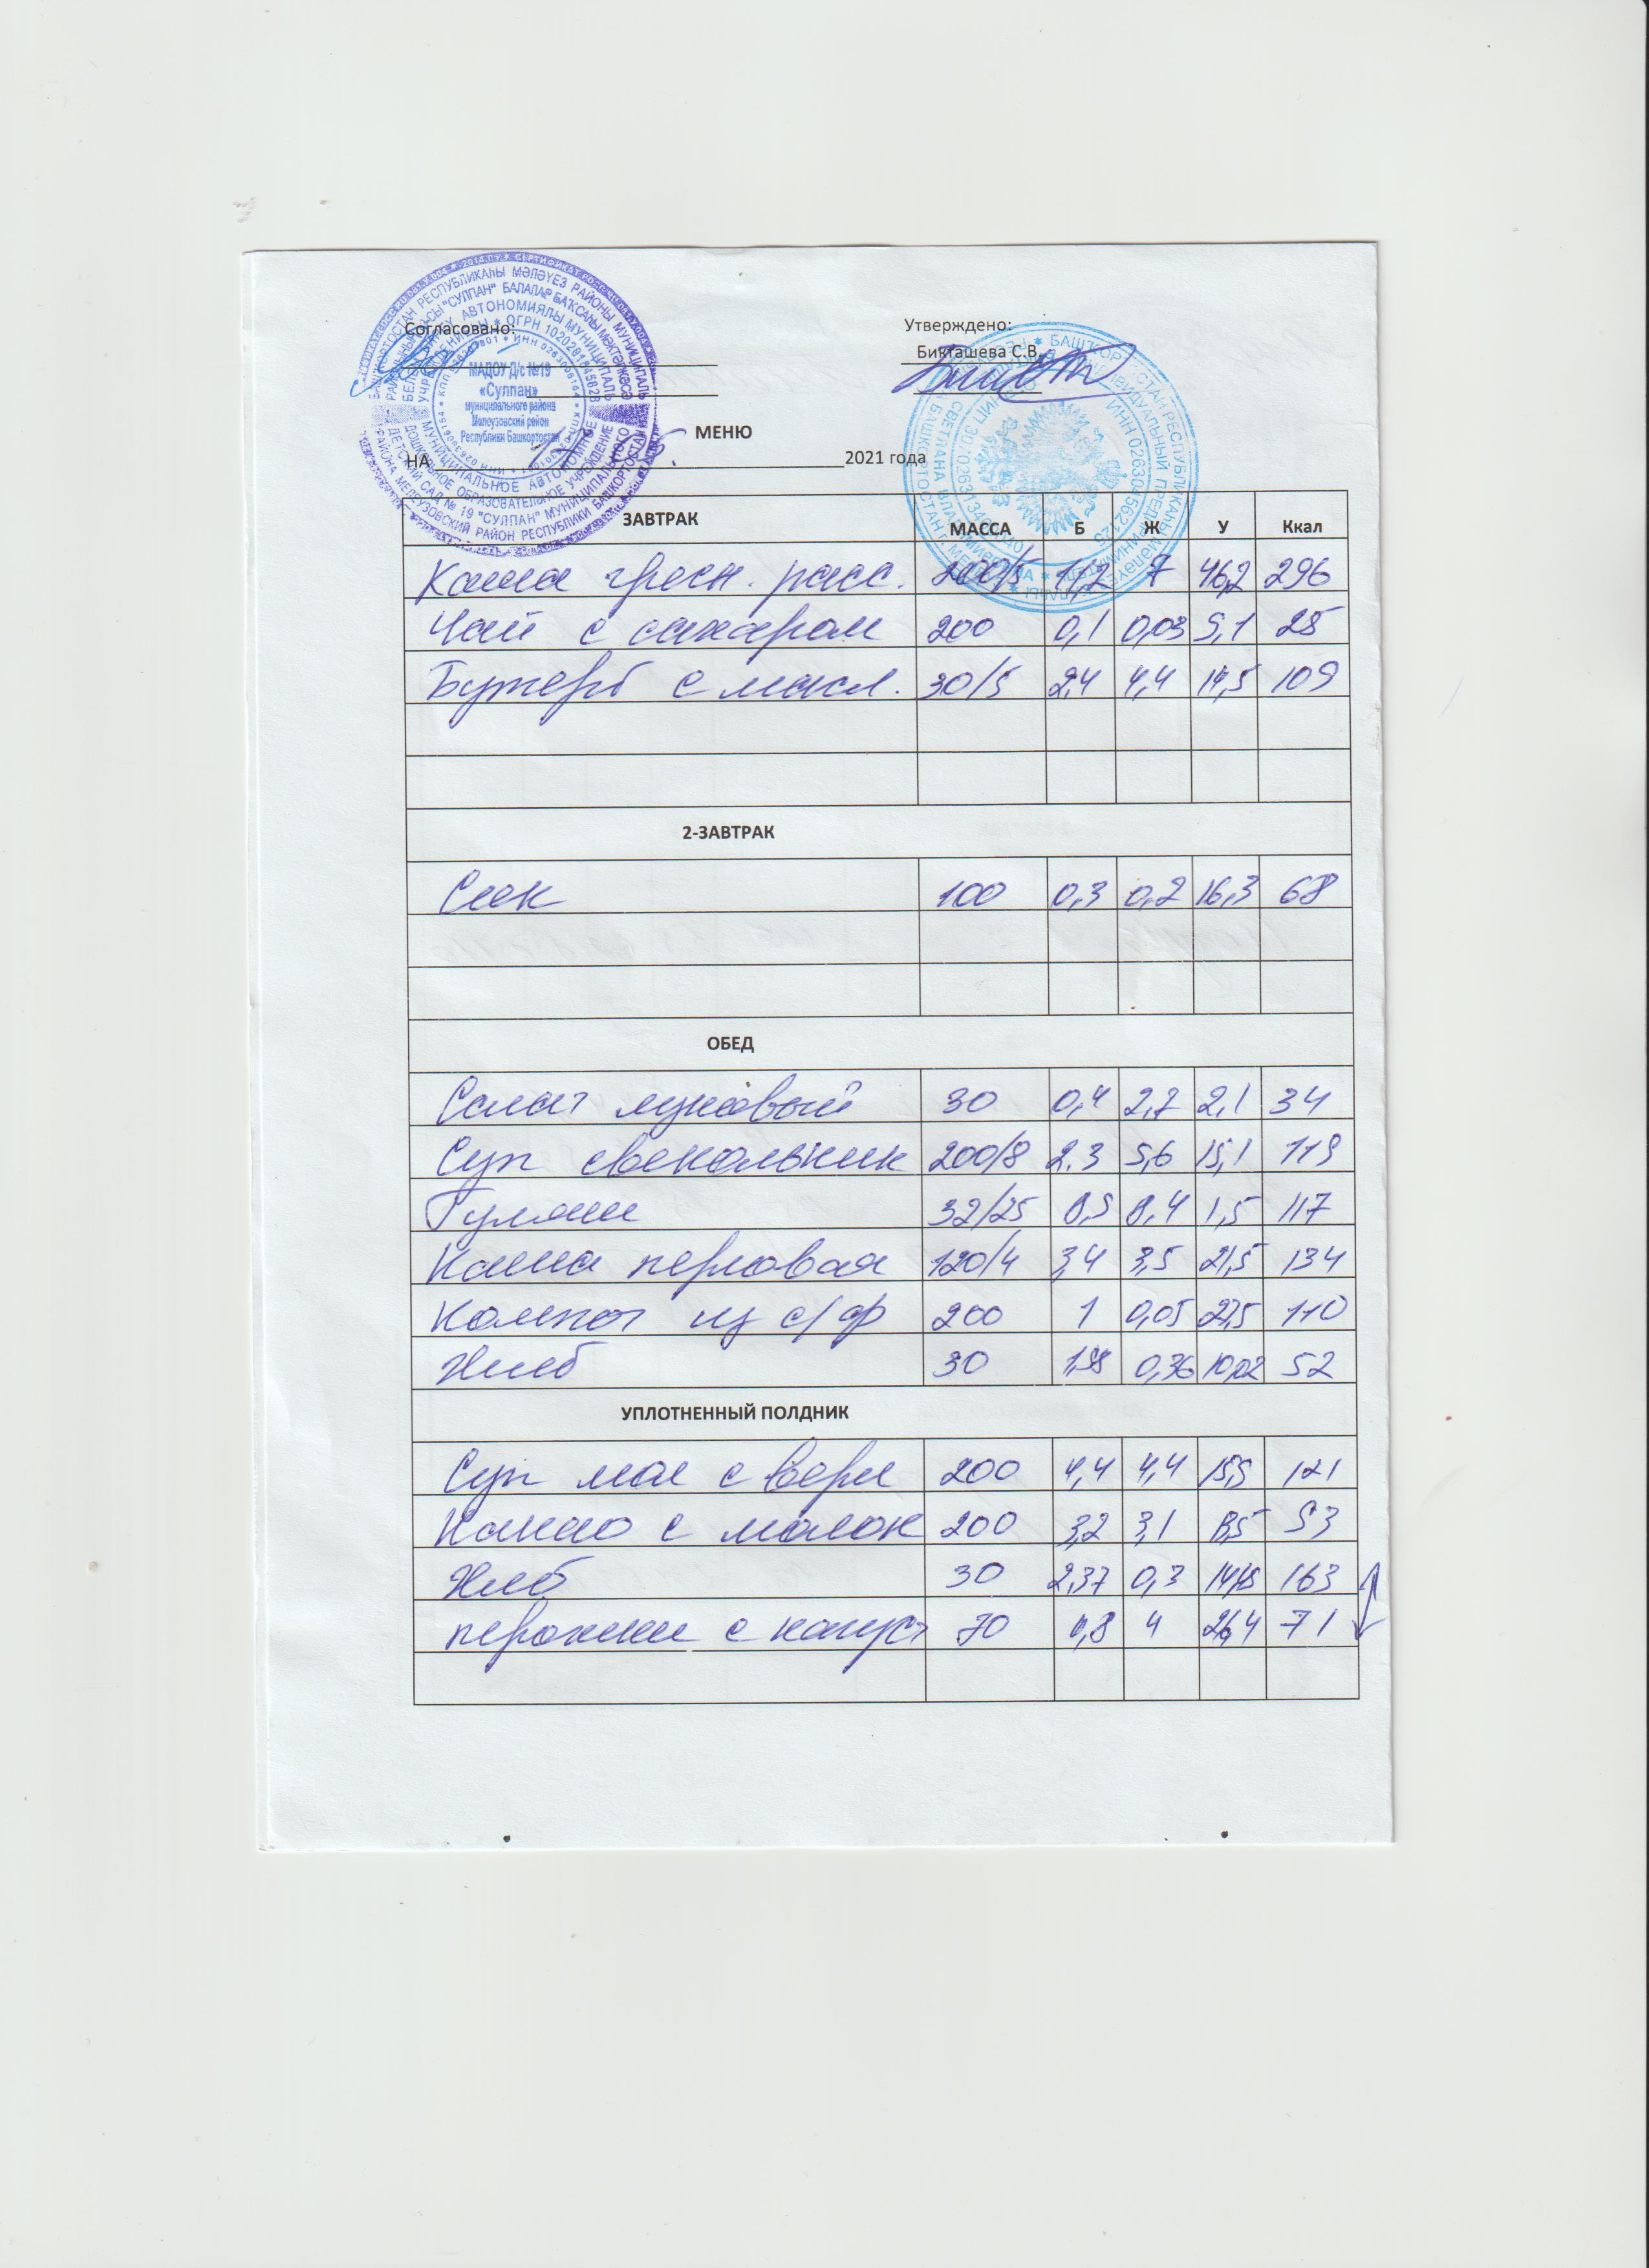 Согласовано:
Утверждено:
Бикташева С.В.
МАДОУ Д/с №19
«Сулпан»
муниципального района
Мелеузовский район
Республики Башкортостан
МЕНЮ
НА 2021 года
ЗАВТРАК МАССА Б Ж У Ккал
Каша гречн. расс. 200/5 11,2 7 46,2 296
Чай с сахаром 200 0,1 0,03 5,1 25
Бутерб с масл. 30/5 2,4 4,4 14,5 109
2-ЗАВТРАК
Сок 100 0,3 0,2 16,3 68
ОБЕД
Салат луковый 30 0,4 2,7 2,1 34
Суп свекольник 200/8 2.3 5,6 15,1 119
Гуляш 32/25 8,4 1,5 117
Каша перловая 120/4 3,4 3,5 21,5 134
Компот из с/ф 200 1 0,05 27,5 110
Хлеб 30 0,36 10,02 52
УПЛОТНЕННЫЙ ПОЛДНИК
Суп мол с верм 200 4,4 4,4 15,5 121
Какао с молок 200 3,2 3,1 53
Хлеб 30 2,37 0,3 163
пирожки с капуст 70 0,8 4 26,4 71